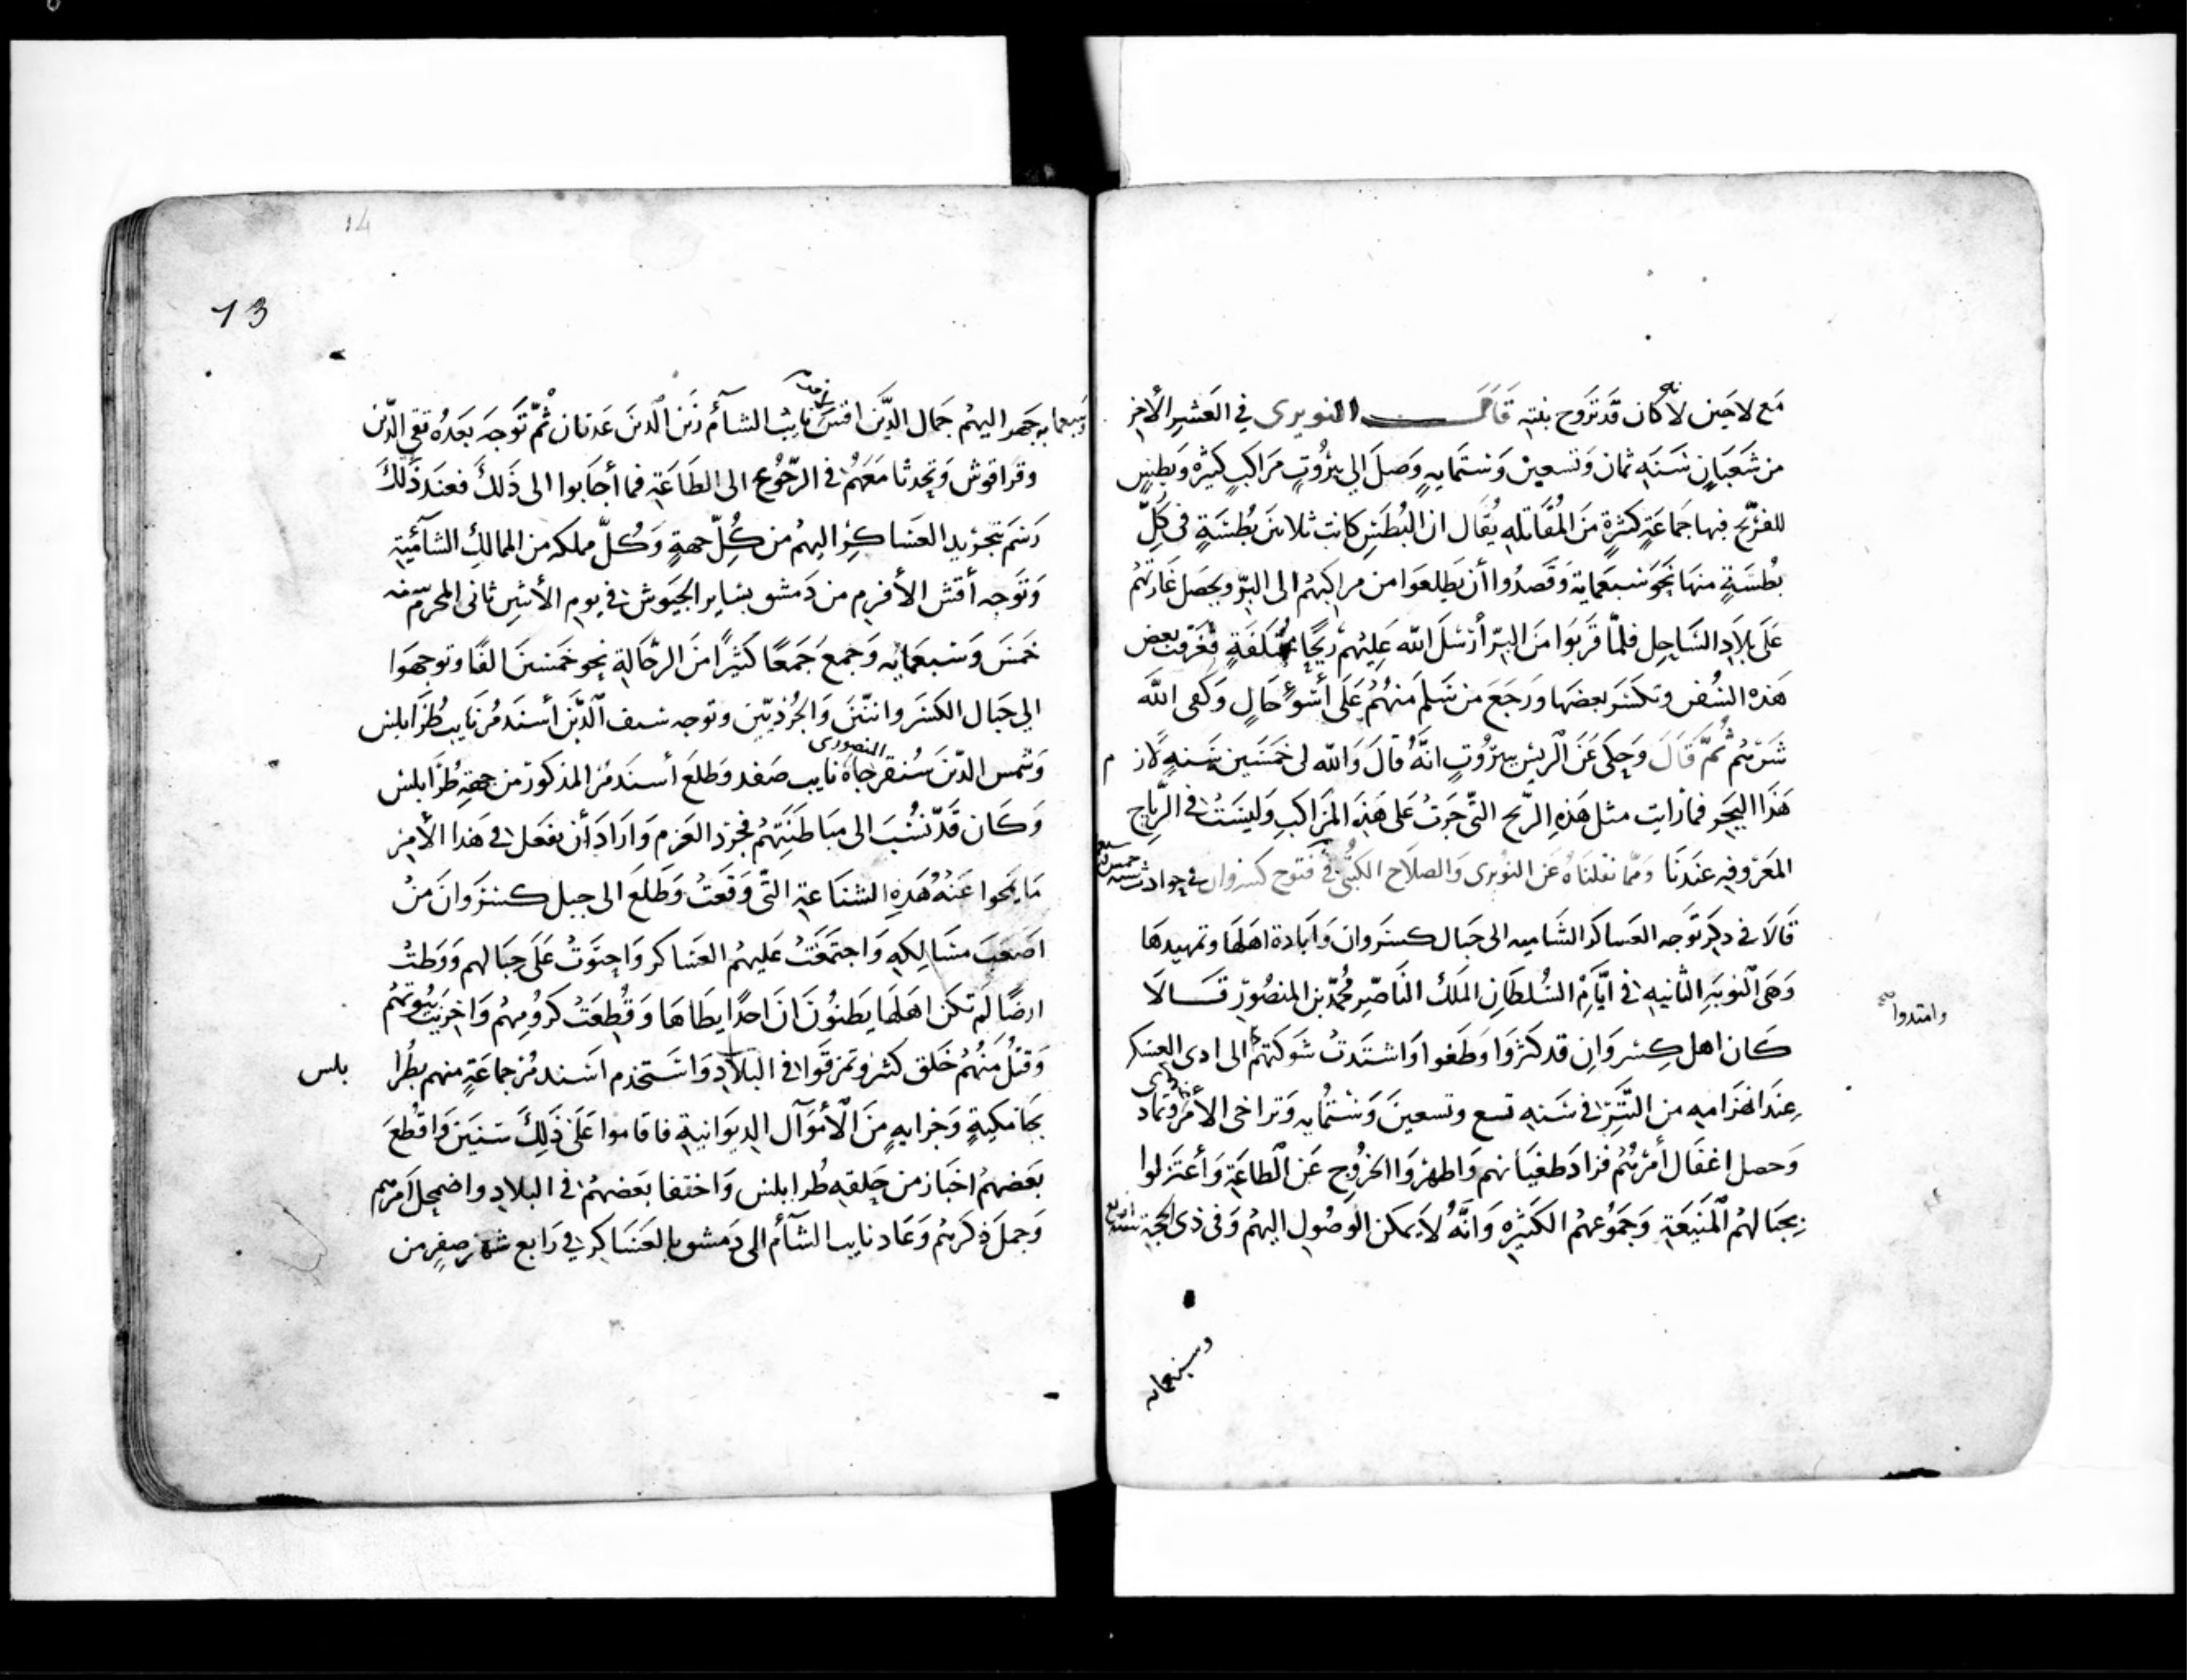 مَع لاجين لانه كان قد تزوج بنته قال النويرى في العَشِر الأخِر
من شَعبَان سَنَه ثمان وَتسعين وَستمايه وَصلَ الى بيرُوت مَرَاكب كثيره وَبطس
للفرنج فيها جَماعَة كثيرة مَن المُقَاتله يُقَال ان البُطَس كانت ثلاثين بُطسَة فى كلّ
بُطسَة منهَا نَحو سَبعمَاية وَقَصدُوا أن يَطلعَوا من مراكبهُم الى البرّ ويحصَل غَارتهُم
عَلى بلاَد السَّاحِل فلمّا قَربوَا مَن البرّ أرسَلَ الله عَليهُم ريحًا مختلفَة فغرّقت بعض
هَذه السُفن وَتكسَّر بعضهَا وَرجَعَ من سَلمَ منهُم عَلَى أسوءِ حَالٍ وَكفى اللهَ
شَرّهُم ثمّ قَالَ وَحكى عَنَ الريس ببيرُوت انهُ قَالَ وَالله لى خمسَين سَنه لازم
هَذا البحر فمارايت مثل هَذه الرّيح التّى جَرتُ عَلى هَذه المرَاكب وَليسَتُ في الرّيَاح
المعَرُوفه عندنَا وَممّا نقلنَاهُ عَن النوَيرى وَالصلاح الكتبُى فى فتوح كسروان في حوادث سنه خمس
قَالاَ في ذكر تَوجه العَساكر الشَاميه الى جَبال كسروان وَابَادة اهَلهَا وتمهيدهَا
وَهىَ النوبَه الثانيه في ايَّام السُلطَان الملَك النَاصِر محُمّد بن المنصُور قَالاَ
كَان اهل كسروَان قد كثرُوا وَطَغوا وَاشتدتُ شوَكتهُم الى اذى العسَكر
وامتدوا صح
عندَ انهزَامه من التَّتر في سَنه تسع وتسعينَ وَستمُايه وَتراخى الأمُر وتمادى
وَحصل اغفَال أمُرهُم فزادَ طغيَانهم وَاظهرُوا الخرُوج عَن الطاعَة وَأعتَزلوا
بجبَالهُم المنيَعَة وَجمَوُعهُم الكثيَره وَانّهُ لاَيمكن الوَصُول اليهُم وَفى ذى الحجة سنة اربع
وسبعمايه
13
14
وسَبعمايه جهر اليهُم جَمال الدّين اقش نايب الشَآم زين الدين عَدنان ثُمّ تَوجهَ بَعدُه تقى الدّين
وقراقوش وَتحدثا مَعَهُم فى الرّجوُع الى الطَاعَة فما أجَابوا الى ذَلكَ فعنَد ذَلكَ
رَسَم بتجرُيد العَساكر اليهُم من كُلّ جهة وَكُلّ مملكه من الممالك الشاميّة
وَتوَجه أقش الأفرم من دَمشق بسَاير الجَيوش في يوم الأثنين ثانى المحرّم سنه
خَمسَ وَسَبعمايه وَجمعَ جَمعًا كَثيرًا منَ الرجَالة نحو خَمسينَ الفًا وتوجهَوا
الي جَبال الكسَروانيّين وَالجُرديّين وتوجه سيف الدّين أسنَدمُر نايب طُرَابلس
وَشمس الدّين سُنقر جاه المنصورى نايب صَفد وَطلعَ أسندَمُر المذكور من جهة طُرَابلس
وَكَان قَد نسُبَ الى مبَاطنَتهُم فجرد العَزم وَارَادَ أن يفعَل في هَذا الأمُر
مَا يمَحوا عَنهُ هَذه الشنَاعة التّى وَقعَتُ وَطَلعَ الى جبل كسروَانَ منُ
اصَعبَ مسَالكه وَاجتمَعَتُ عَليهُم العَساكر وَاحتوَتُ عَلَى جبَالهم وَوَطتُ
ارضًا لم تكنُ اهَلهَا يظنوُن انَ احدًا يطَاهَا وَقُطعَتُ كرُومهُم وَاخربتُ بيُوتهُم
وَقتلُ منهُم خَلق كثير وتَمزقوَا في البلادِ وَاستَخدم اسَندمُر جماعَة منهم بطُرابلس
بجَامَكية وَجرايه مَن الأموَال الديوَانية فاقاموا عَلَى ذَلكَ سنيَن وَاقُطعَ
بعَضهُم اخبَاز من حَلقه طُرابلس وَاختفا بعَضهُم في البلاد واضمحل أمرُهم
وَخملَ ذكرهُم وَعَاد نايب الشَآم الى دَمشق بالعَسَاكر في رَابع شَهر صَفر من